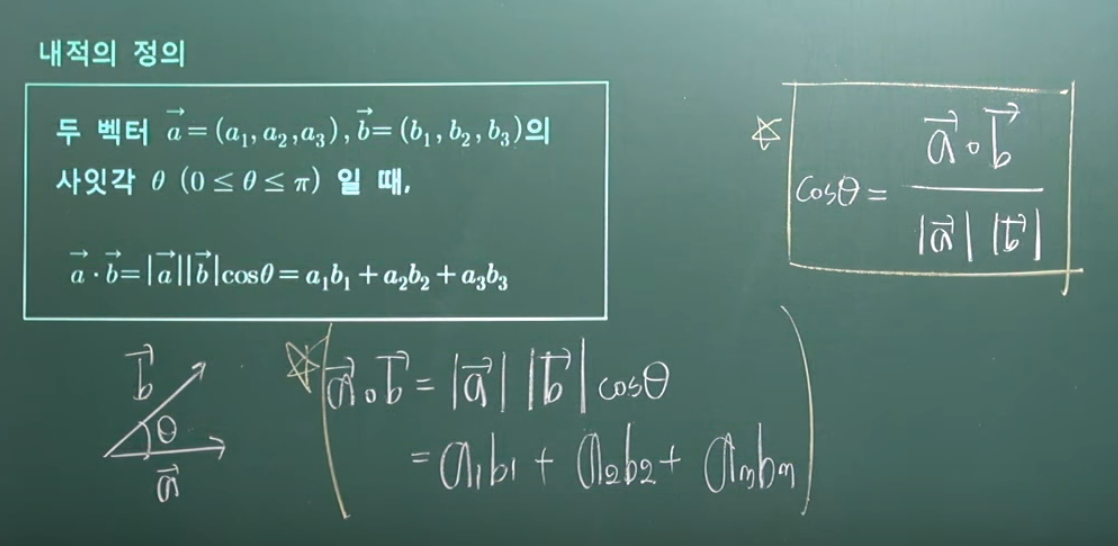 내적의 정의
두 벡터 $\vec{a} = (a_1, a_2, a_3), \vec{b} = (b_1, b_2, b_3)$의
사잇각 $\theta$ $(0 \le \theta \le \pi)$ 일 때,
$\vec{a} \cdot \vec{b} = |\vec{a}||\vec{b}|\cos\theta = a_1b_1 + a_2b_2 + a_3b_3$
$\cos\theta = \frac{\vec{a} \circ \vec{b}}{|\vec{a}| |\vec{b}|}$
$\vec{b}$
$\theta$
$\vec{a}$
$\vec{a} \circ \vec{b} = |\vec{a}| |\vec{b}| \cos\theta$
$= a_1b_1 + a_2b_2 + a_nb_n$